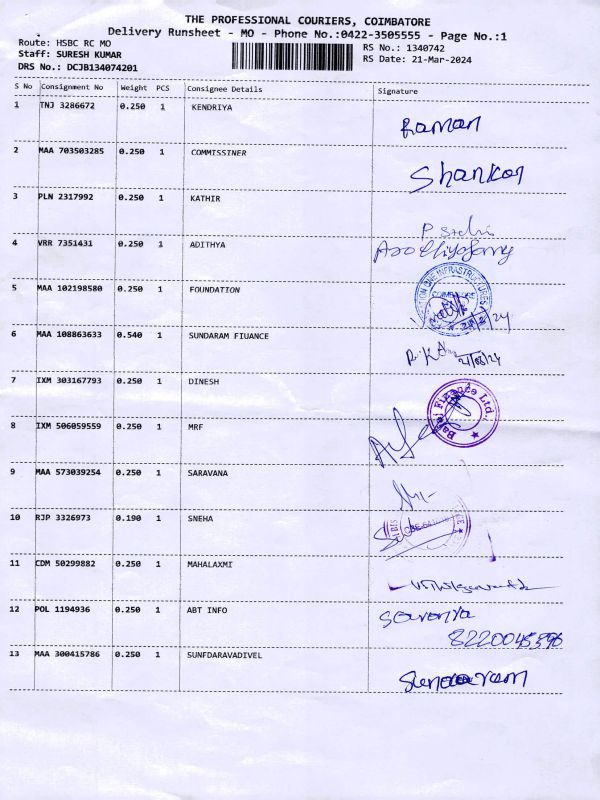 THE PROFESSIONAL COURIERS, COIMBATORE
Delivery Runsheet - MO - Phone No.:0422-3505555 - Page No.:1
Route: HSBC RC MO
RS No.: 1340742
Staff: SURESH KUMAR
RS Date: 21-Mar-2024
DRS No.: DCJB134074201
S No Consignment No Weight PCS Consignee Details Signature
1 TNJ 3286672 0.250 1 KENDRIYA
Raman
2 MAA 703503285 0.250 1 COMMISSINER
Shankar
3 PLN 2317992 0.250 1 KATHIR
4 VRR 7351431 0.250 1 ADITHYA
5 MAA 102198580 0.250 1 FOUNDATION
6 MAA 108863633 0.540 1 SUNDARAM FIUANCE
7 IXM 303167793 0.250 1 DINESH
Bajaj Finance Ltd.,
8 IXM 506059559 0.250 1 MRF
9 MAA 573039254 0.250 1 SARAVANA
10 RJP 3326973 0.190 1 SNEHA
11 CDM 50299882 0.250 1 MAHALAXMI
12 POL 1194936 0.250 1 ABT INFO
13 MAA 300415786 0.250 1 SUNFDARAVADIVEL